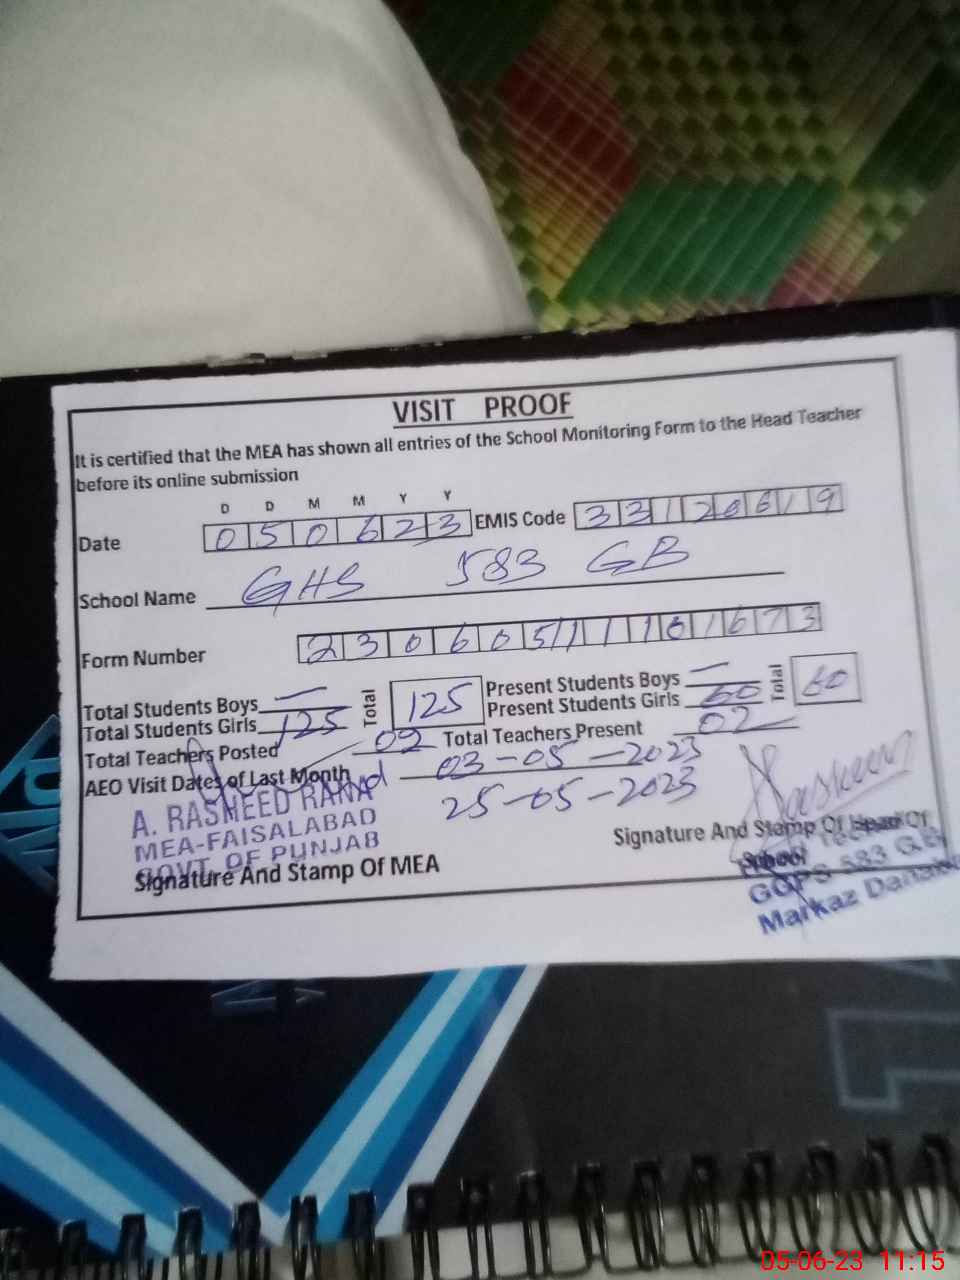 VISIT PROOF
It is certified that the MEA has shown all entries of the School Monitoring Form to the Head Teacher
before its online submission
D D M M Y Y
Date 050623 EMIS Code 33120619
School Name GHS 583 GB
Form Number 230605111101673
Total Students Boys — Total 125 Present Students Boys — Total 60
Total Students Girls 125 Present Students Girls 60
Total Teachers Posted 02 Total Teachers Present 02
AEO Visit Dates of Last Month 03-05-2023
25-05-2023
A. RASHEED RANA
MEA-FAISALABAD
GOVT. OF PUNJAB
Signature And Stamp Of MEA
Signature And Stamp Of Head Of
School
583 G.B
Markaz
05-06-23 11:15